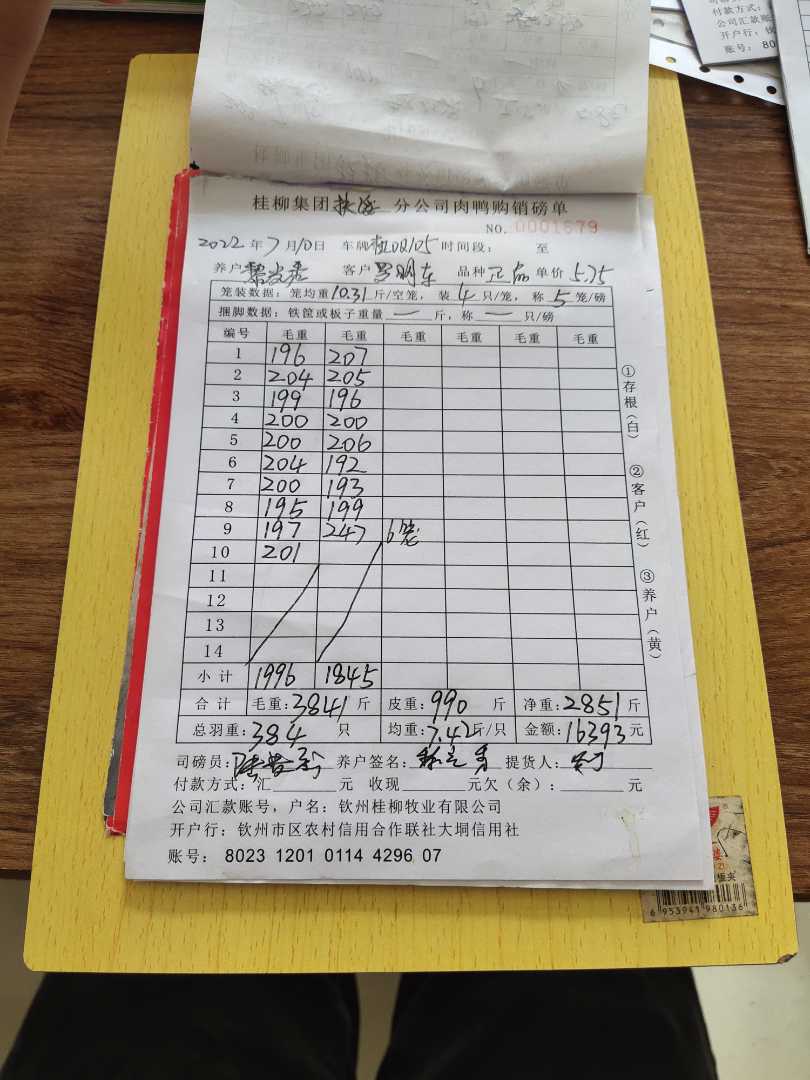 付款方式:
公司汇款账
开户行: 钦
账号: 80
桂柳集团 分公司肉鸭购销磅单
NO. 0001679
2022年7月10日 车牌 时间段: 至
养户 客户 罗明东 品种 正品 单价 5.75
笼装数据: 笼均重10.31斤/空笼, 装4只/笼, 称5笼/磅
捆脚数据: 铁筐或板子重量 — 斤, 称 — 只/磅
编号 毛重 毛重 毛重 毛重 毛重 毛重
1 196 207
2 204 205
3 199 196
4 200 200
5 200 206
6 204 192
7 200 193
8 195 199
9 197 247 6笼
10 201
11
12
13
14
小计 1996 1845
合计 毛重:3841斤 皮重:990斤 净重:2851斤
总羽重:384只 均重:7.42斤/只 金额:16393元
①存根(白)
②客户(红)
③养户(黄)
司磅员: 养户签名: 提货人:
付款方式:汇______元 收现______元欠(余):______元
公司汇款账号, 户名: 钦州桂柳牧业有限公司
开户行: 钦州市区农村信用合作联社大垌信用社
账号: 8023 1201 0114 4296 07
6 953941 980136